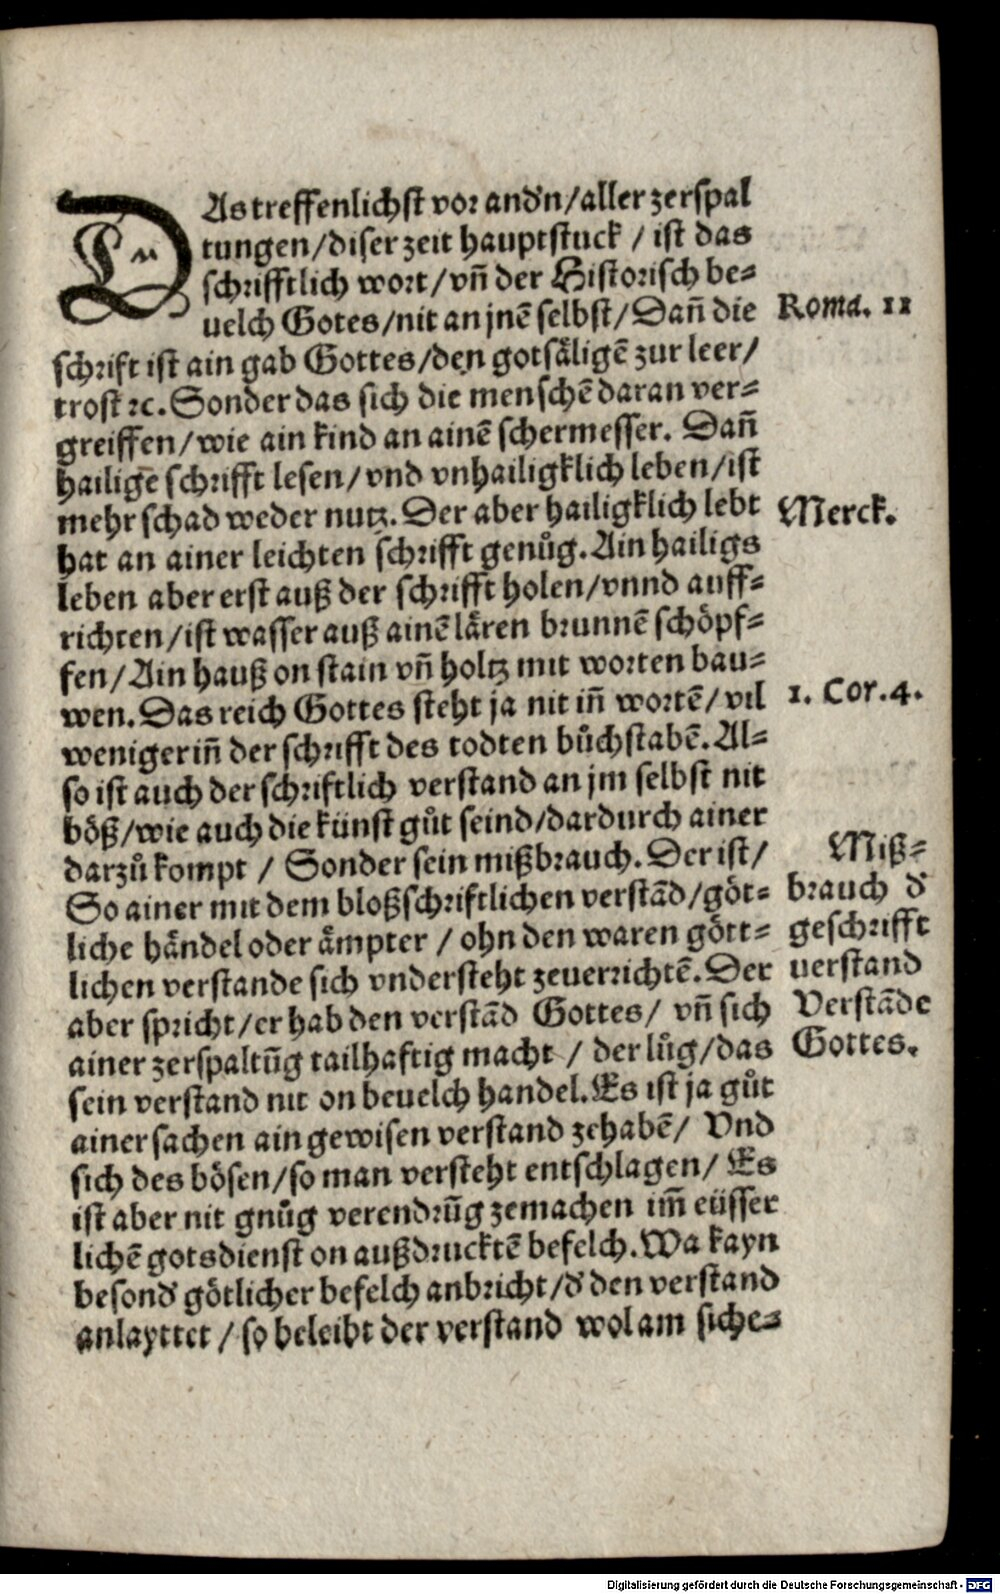 DAs treffenlichst vor andˀn/aller zerspal
tungen/diser zeit hauptstuck / ist das
schrifftlich wort/vñ der Historisch be⸗
uelch Gotes/nit an jnē selbst/Dañ die
schrift ist ain gab Gottes/den gotsäligē zur leer/
trost ꝛc. Sonder das sich die menschē daran ver⸗
greiffen/wie ain kind an ainē schermesser. Dañ
hailige schrifft lesen/vnd vnhailigklich leben/ist
mehr schad weder nutz. Der aber hailigklich lebt
hat an ainer leichten schrifft genůg. Ain hailigs
leben aber erst auß der schrifft holen/vnnd auff⸗
richten/ist wasser auß ainē lären brunnē schöpf⸗
fen/Ain hauß on stain vñ holtz mit worten bau⸗
wen. Das reich Gottes steht ja nit iñ wortē/vil
weniger iñ der schrifft des todten bůchstabē. Al⸗
so ist auch der schriftlich verstand an jm selbst nit
böß/wie auch die künst gůt seind/dardurch ainer
darzů kompt / Sonder sein mißbrauch. Der ist/
So ainer mit dem bloßschriftlichen verstād/göt⸗
liche händel oder ämpter / ohn den waren gött⸗
lichen verstande sich vndersteht zeuerrichtē. Der
aber spricht/er hab den verstād Gottes/ vñ sich
ainer zerspaltūg tailhaftig macht / der lůg/das
sein verstand nit on beuelch handel. Es ist ja gůt
ainer sachen ain gewisen verstand zehabē/ Vnd
sich des bösen/so man versteht entschlagen/ Es
ist aber nit gnůg verendrūg zemachen im̄ eüsser
lichē gotsdienst on außdrucktē befelch. Wa kayn
besondˀ götlicher befelch anbricht/dˀ den verstand
anlayttet / so beleibt der verstand wol am siche⸗
Roma. 11
Merck.
1. Cor. 4.
Miß⸗
brauch dˀ
geschrifft
uerstand
Verstāde
Gottes.
Digitalisierung gefördert durch die Deutsche Forschungsgemeinschaft - DFG